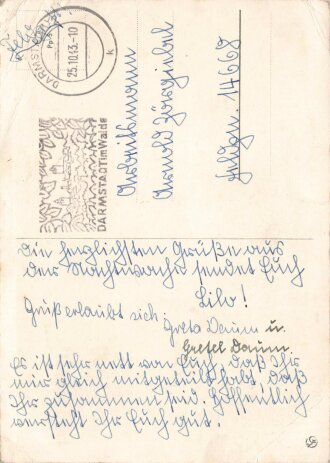 Feldpost
DARMSTADT
25.10.43.-10
k
DARMSTADT im Walde
Arbeitsmann
Arnold Zörgiebel
Feldpn. 14668
Die herzlichsten Grüße aus
der Nachtwache sendet Euch
Lilo!
Gruß erlaubt sich
Greta Daum u.
Gretel Daum.
Es ist sehr nett von Euch, daß Ihr
mir gleich mitgeteilt habt, daß
Ihr zusammen seid. Hoffentlich
versteht Ihr Euch gut.